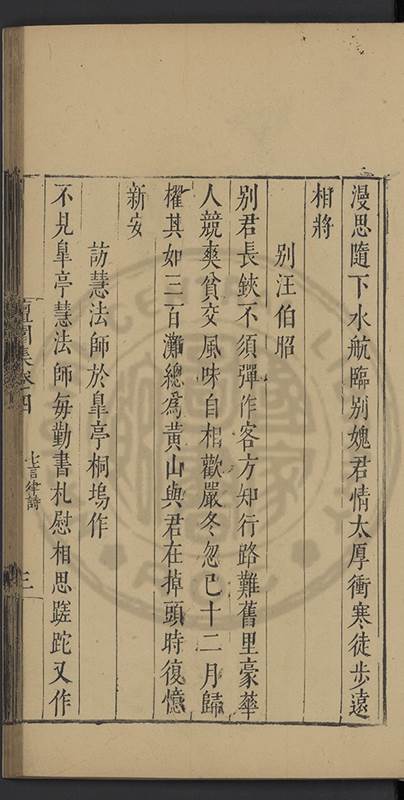 漫思隨下水航臨別媿君情太厚衝寒徒步遠
相將
別汪伯昭
別君長鋏不須彈作客方知行路難舊里豪華
人競爽貧交風味自相歡嚴冬忽已十二月歸
櫂其如三百灘總爲黃山與君在掉頭時復憶
新安
訪慧法師於皐亭桐塢作
不見皐亭慧法師每勤書札慰相思蹉跎又作
集卷四
七言律詩
三